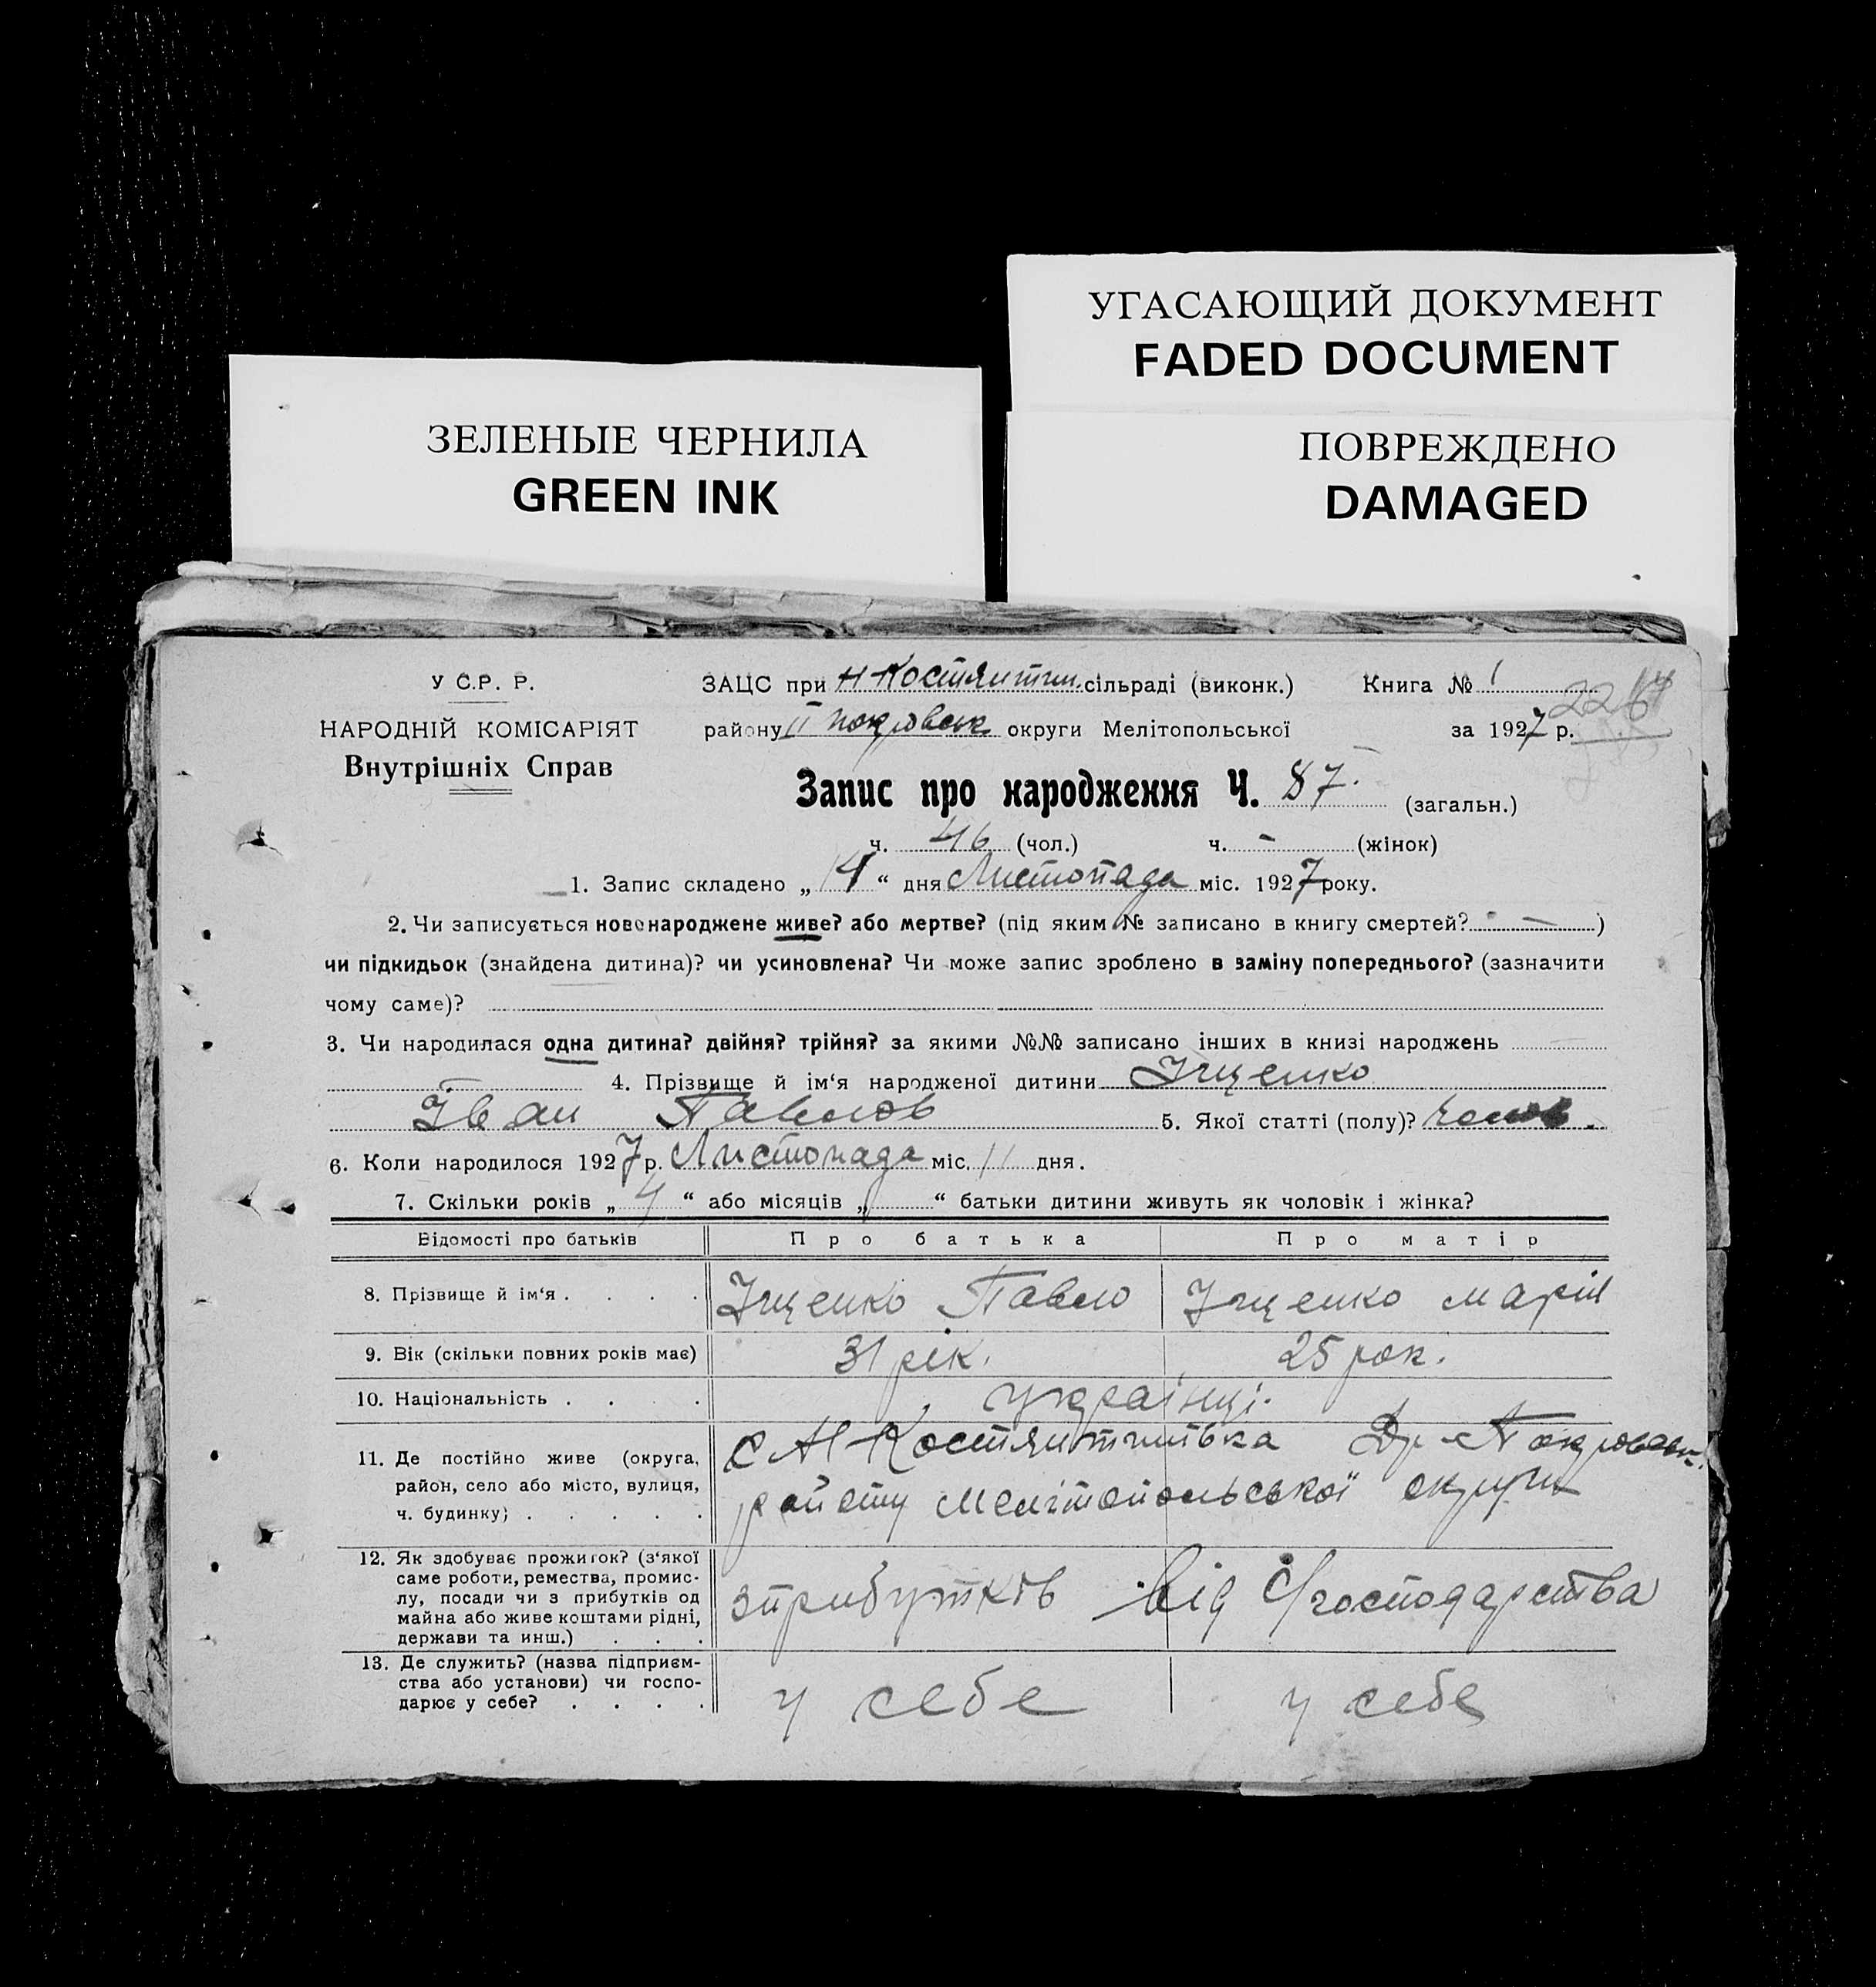 УГАСАЮЩИЙ ДОКУМЕНТ
FADED DOCUMENT
ЗЕЛЕНЫЕ ЧЕРНИЛА
GREEN INK
ПОВРЕЖДЕНО
DAMAGED
У С.Р. Р.
НАРОДНІЙ КОМІСАРІЯТ
Внутрішніх Справ
ЗАЦС при Н Костянтин. сільраді (виконк.) Книга № 1
району II Покровськ округи Мелітопольської за 1927 р.
Запис про народження Ч. 87. (загальн.)
ч. 46 (чол.) ч. - (жінок)
1. Запис складено „ 14 “ дня Листопада міс. 1927 року.
2. Чи записується новонароджене живе? або мертве? (під яким № записано в книгу смертей? — )
чи підкидьок (знайдена дитина)? чи усиновлена? Чи може запис зроблено в заміну попереднього? (зазначити
чому саме)?
3. Чи народилася одна дитина? двійня? трійня? за якими №№ записано інших в книзі народжень
4. Прізвище й ім‘я народженої дитини Іщенко
Іван Павлов 5. Якої статті (полу)? чолов.
6. Коли народилося 1927 р. Листопада міс. 11 дня.
7. Скільки років „ 4 “ або місяців „ “ батьки дитини живуть як чоловік і жінка?
Відомості про батьків Про батька Про матір
8. Прізвище й ім‘я . . . . Іщенко Павло Іщенко Марія
9. Вік (скільки повних років має) 31 рік. 25 рок.
10. Національність . . . . українці.
11. Де постійно живе (округа,
район, село або місто, вулиця,
ч. будинку) . . . . .
с Н-Костянтинівка Др-Покровськ.
району Мелітопольської округи
12. Як здобуває прожиток? (з‘якої
саме роботи, ремества, промис-
лу, посади чи з прибутків од
майна або живе коштами рідні,
держави та инш.) . . .
зприбутків від с/господарства
13. Де служить? (назва підприєм-
ства або установи) чи госпо-
дарює у себе? . . . .
у себе у себе